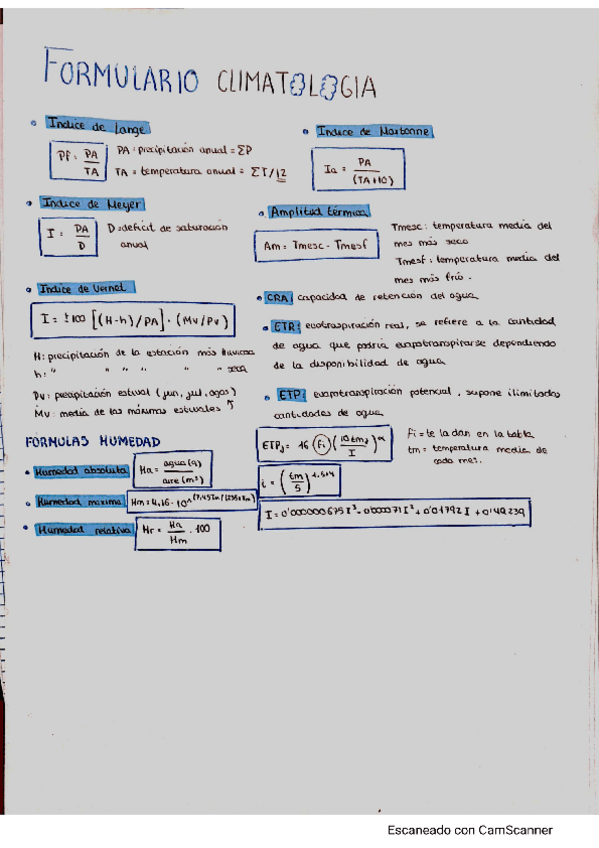 FORMULARIO CLIMATOLOGIA
• Indice de Lange
Pf = PA/TA
PA = precipitación anual = ΣP
TA = temperatura anual = ΣT/12
• Indice de Martonne
Ia = PA/(TA+10)
• Indice de Meyer
I = PA/D
D = deficit de saturación
anual
• Amplitud térmica
Am = Tmesc - Tmesf
Tmesc: temperatura media del
mes más seco
Tmesf: temperatura media del
mes más frío.
• Indice de Vernet
I = ±100 [(H-h)/PA] · (Mv/Pv)
H: precipitación de la estación más lluviosa
h: " " " " " " seca
Pv: precipitación estival (jun, jul, agos)
Mv: media de las máximas estivales
• CRA: capacidad de retención del agua
• ETR: evotraspiración real, se refiere a la cantidad
de agua que podría evapotranspirarse dependiendo
de la disponibilidad de agua
• ETP: evapotranspiración potencial, supone ilimitadas
cantidades de agua
ETPj = 16 (Fi) (10tmj/I)^α
Fi = te la dan en la tabla
tm = temperatura media de
cada mes.
i = (tm/5)^1.514
I = 0'000000675I³ - 0'000071I² + 0'01792I + 0'49239
FORMULAS HUMEDAD
• Humedad absoluta
Ha = agua(g)/aire(m³)
• Humedad maxima
Hm = 4,16 · 10^(7.45Tm/(235+Tm))
• Humedad relativa
Hr = Ha/Hm · 100
Escaneado con CamScanner